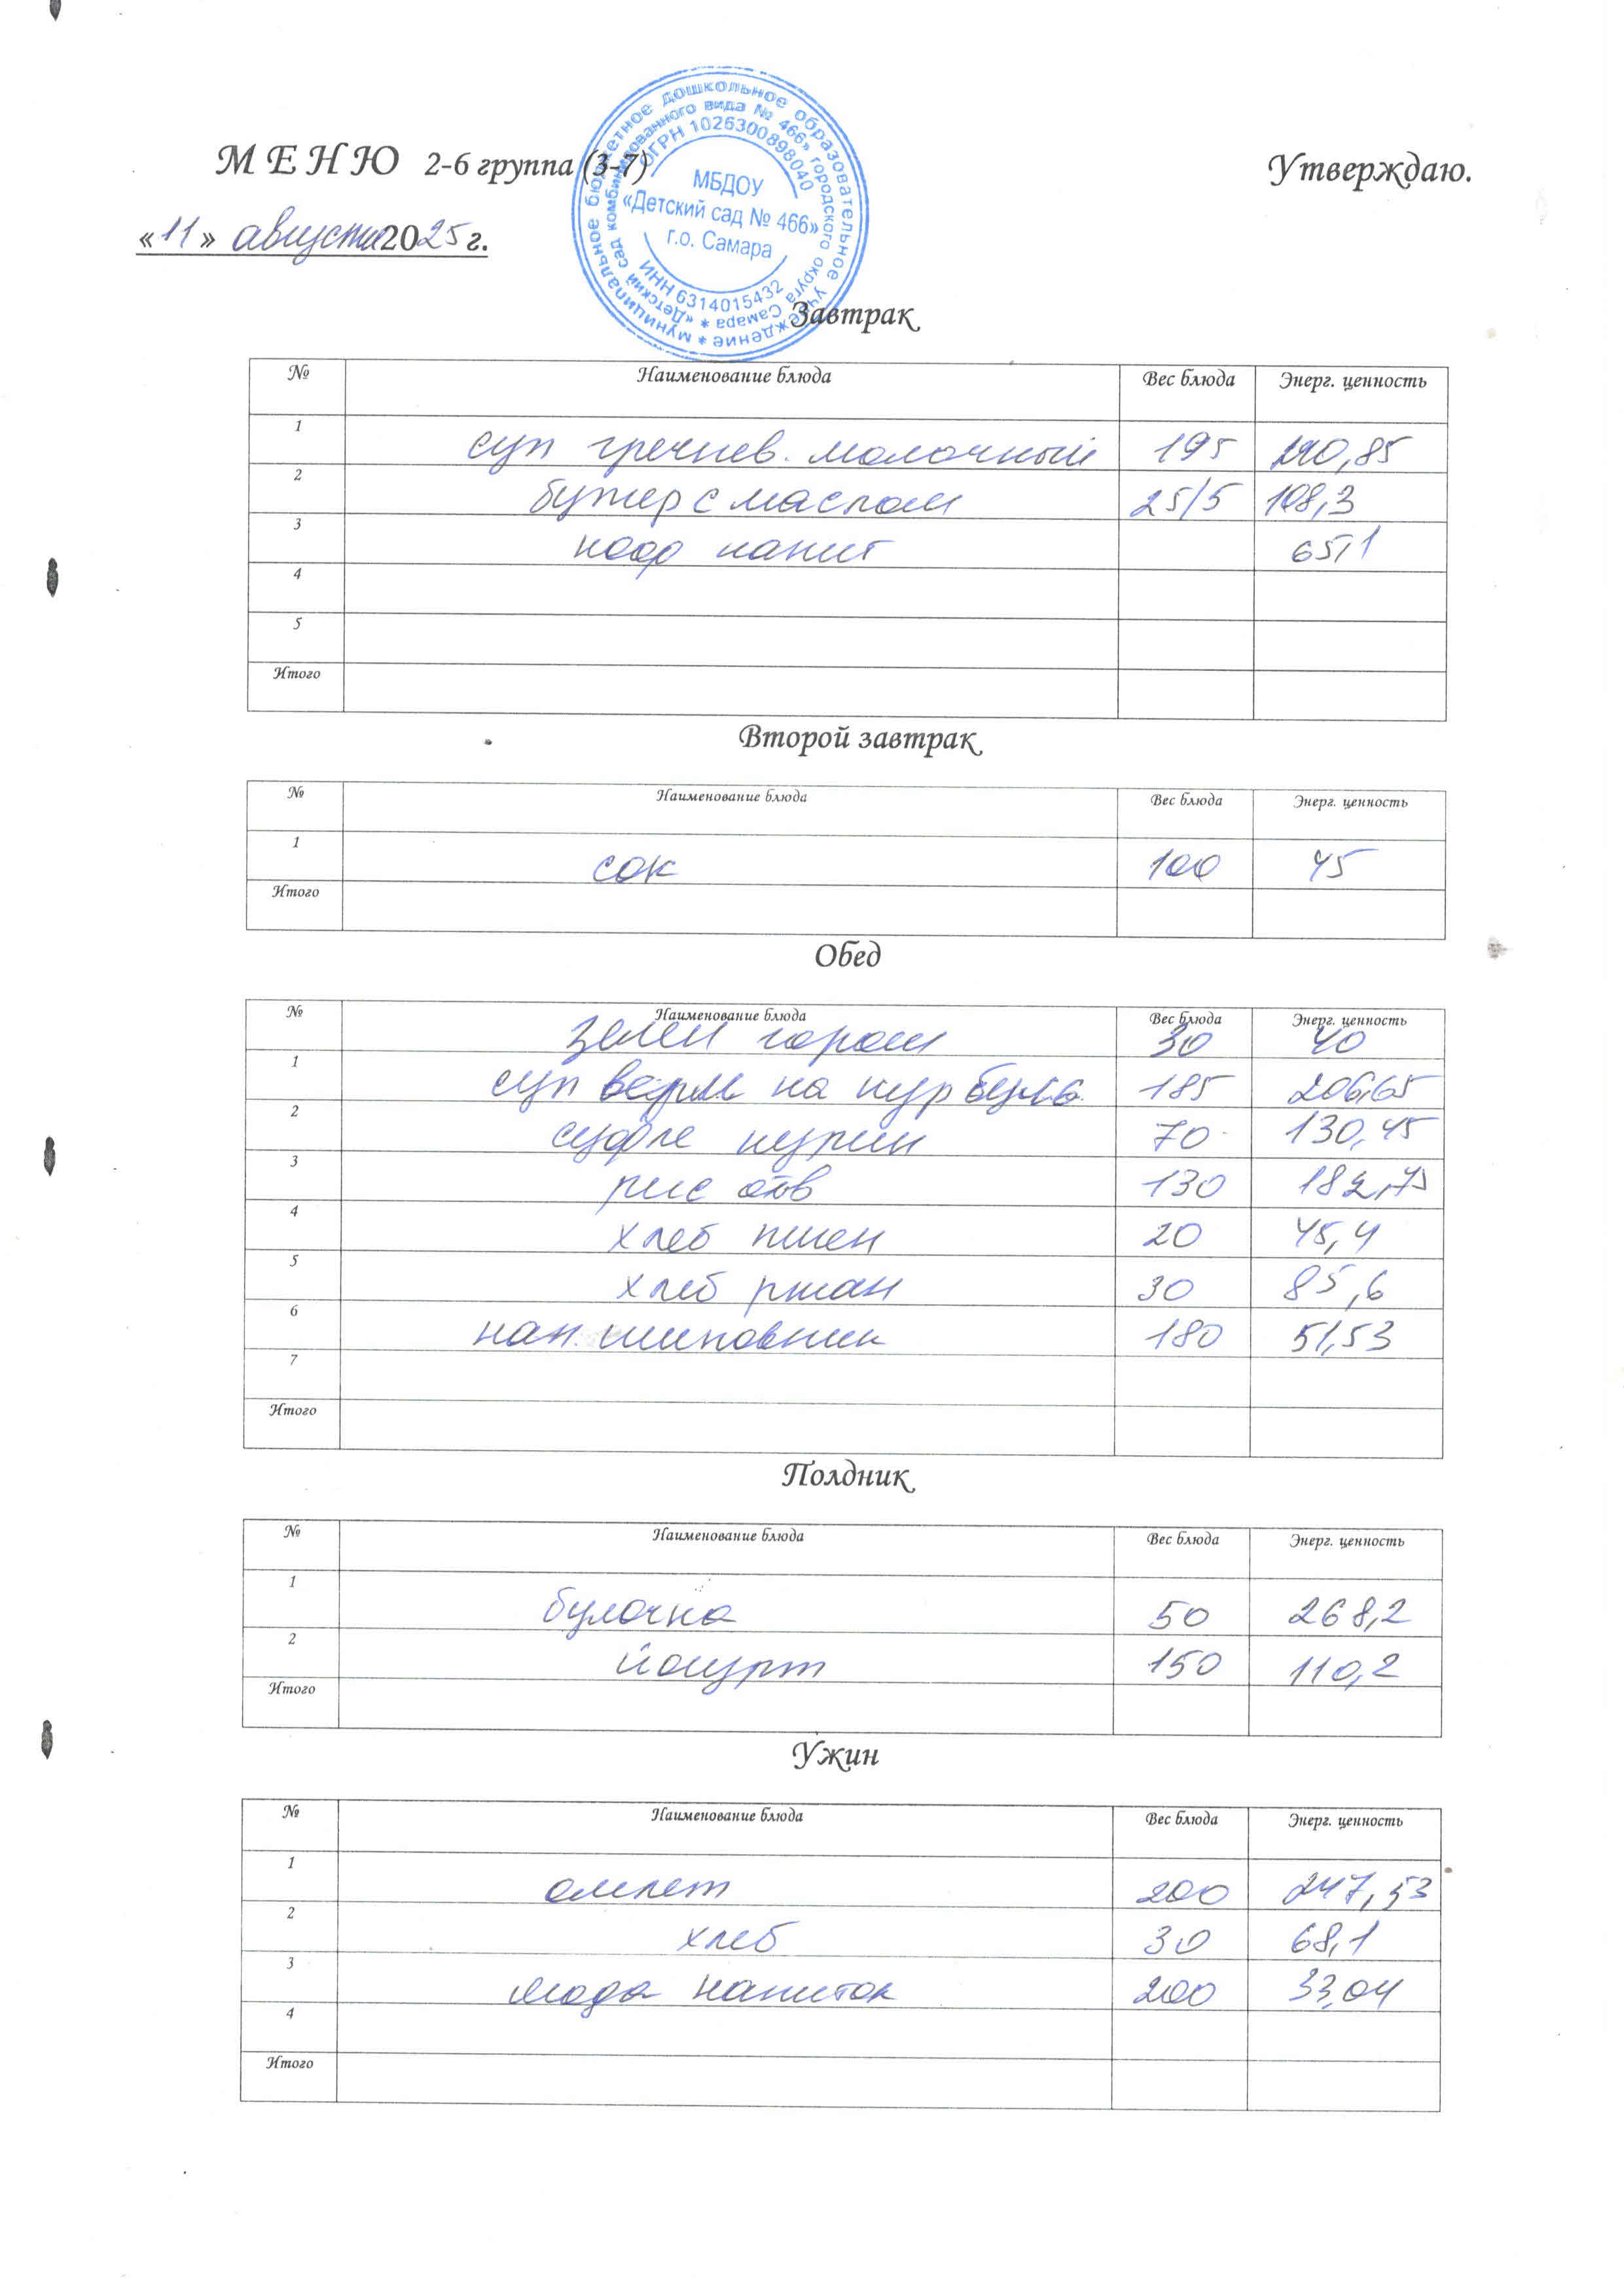 муниципальное бюджетное дошкольное образовательное учреждение *
«Детский сад комбинированного вида № 466» городского округа Самара *
ОГРН 1026300898040
МБДОУ
«Детский сад № 466»
г.о. Самара
ИНН 6314015432
М Е Н Ю 2-6 группа (3-7) Утверждаю.
«11» августа 2025 г.
Завтрак
№ Наименование блюда Вес блюда Энерг. ценность
1 суп гречнев. молочный 195 190,85
2 бутер с маслом 25/5 108,3
3 напит 65,1
4
5
Итого
Второй завтрак
№ Наименование блюда Вес блюда Энерг. ценность
1 сок 100 45
Итого
Обед
№ Наименование блюда Вес блюда Энерг. ценность
зелен горош 30 40
1 суп верм на кур бульо. 185 206,65
2 суфле курин 70 130,45
3 рис отв 130 182,75
4 хлеб пшен 20 45,4
5 хлеб ржан 30 85,6
6 нап. шиповник 180 51,53
7
Итого
Полдник
№ Наименование блюда Вес блюда Энерг. ценность
1 булочка 50 268,2
2 йогурт 150 110,2
Итого
Ужин
№ Наименование блюда Вес блюда Энерг. ценность
1 омлет 200 247,53
2 хлеб 30 68,1
3 напиток 200 33,04
4
Итого